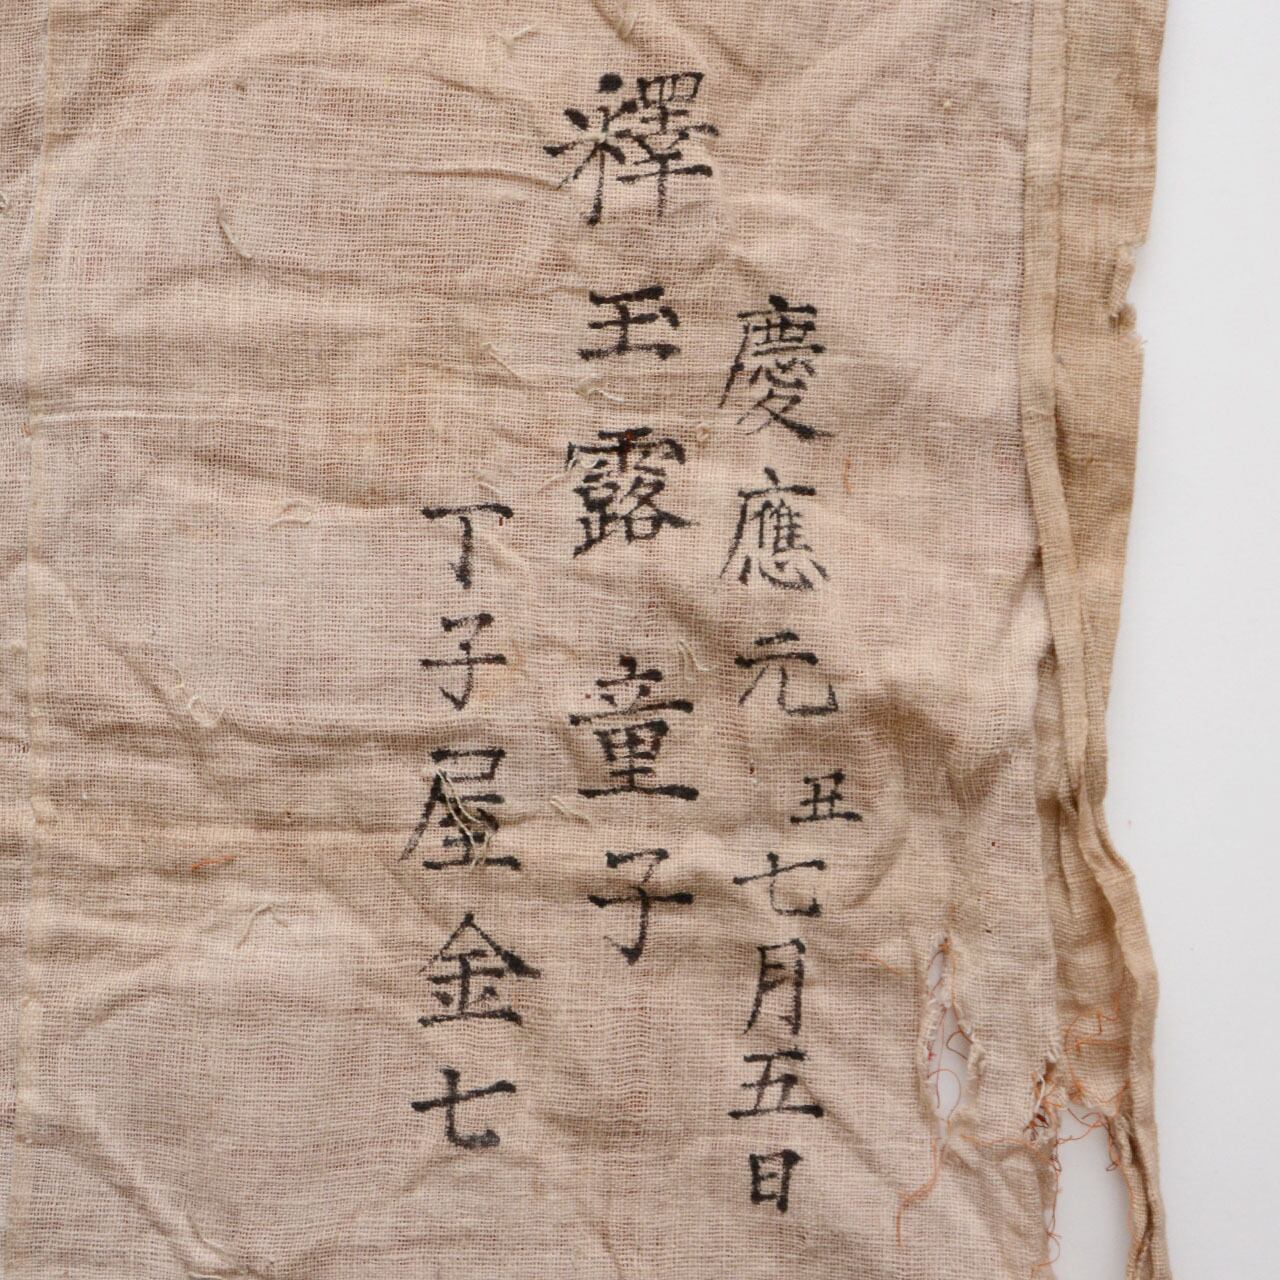 慶應元丑七月五日
釋玉露童子
丁子屋金七